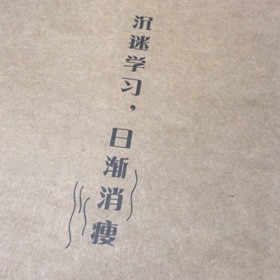 沉迷学习，日渐消瘦